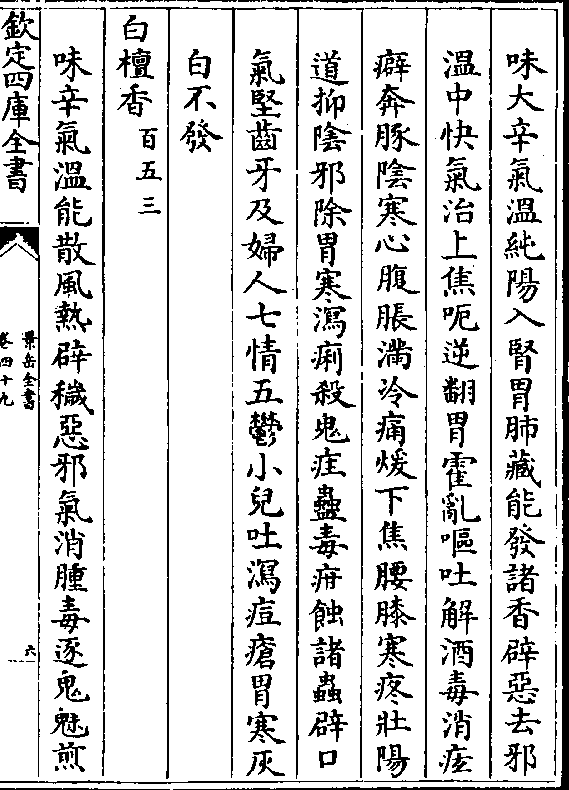 味大辛氣溫純陽入腎胃肺藏能發諸香辟惡去邪
溫中快氣治上焦呃逆翻胃霍亂嘔吐解酒毒消痃
癖奔豚陰寒心腹脹滿冷痛煖下焦腰膝寒疼壯陽
道抑陰邪除胃寒瀉痢殺鬼疰蠱毒疳蝕諸蟲辟口
氣堅齒牙及婦人七情五鬱小兒吐瀉痘瘡胃寒灰
白不發
白檀香百五三
味辛氣溫能散風熱辟穢惡邪氣消腫毒逐鬼魅煎
欽定四庫全書
景岳全書
卷四十九
六